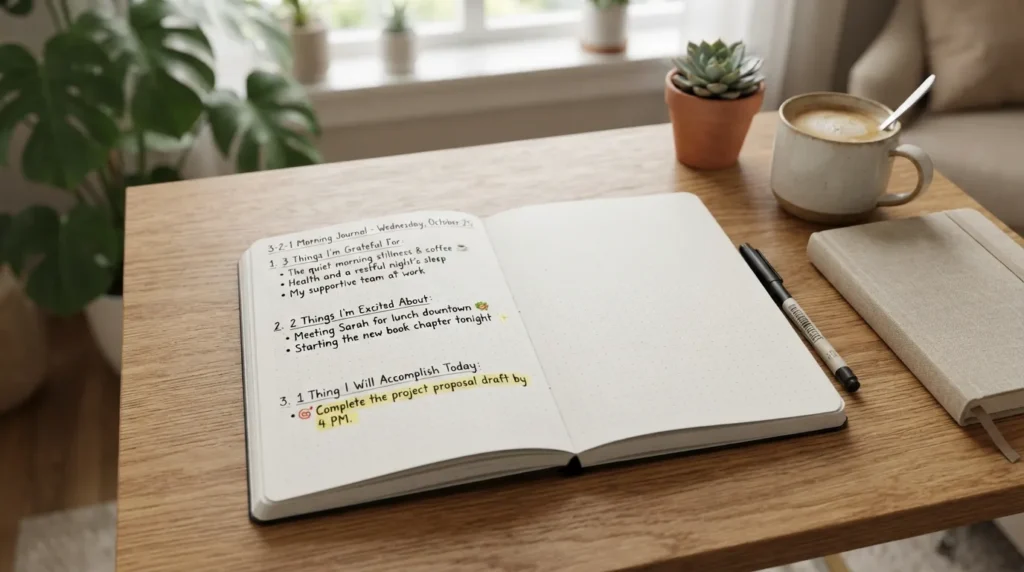 3-2-1 Morning Journal - Wednesday, October
1. 3 Things I'm Grateful For:
• The quiet morning stillness & coffee ☕
• Health and a restful night's sleep
• My supportive team at work
2. 2 Things I'm Excited About:
• Meeting Sarah for lunch downtown
• Starting the new book chapter tonight
3. 1 Thing I Will Accomplish Today:
• 🎯 Complete the project proposal draft by
4 PM.